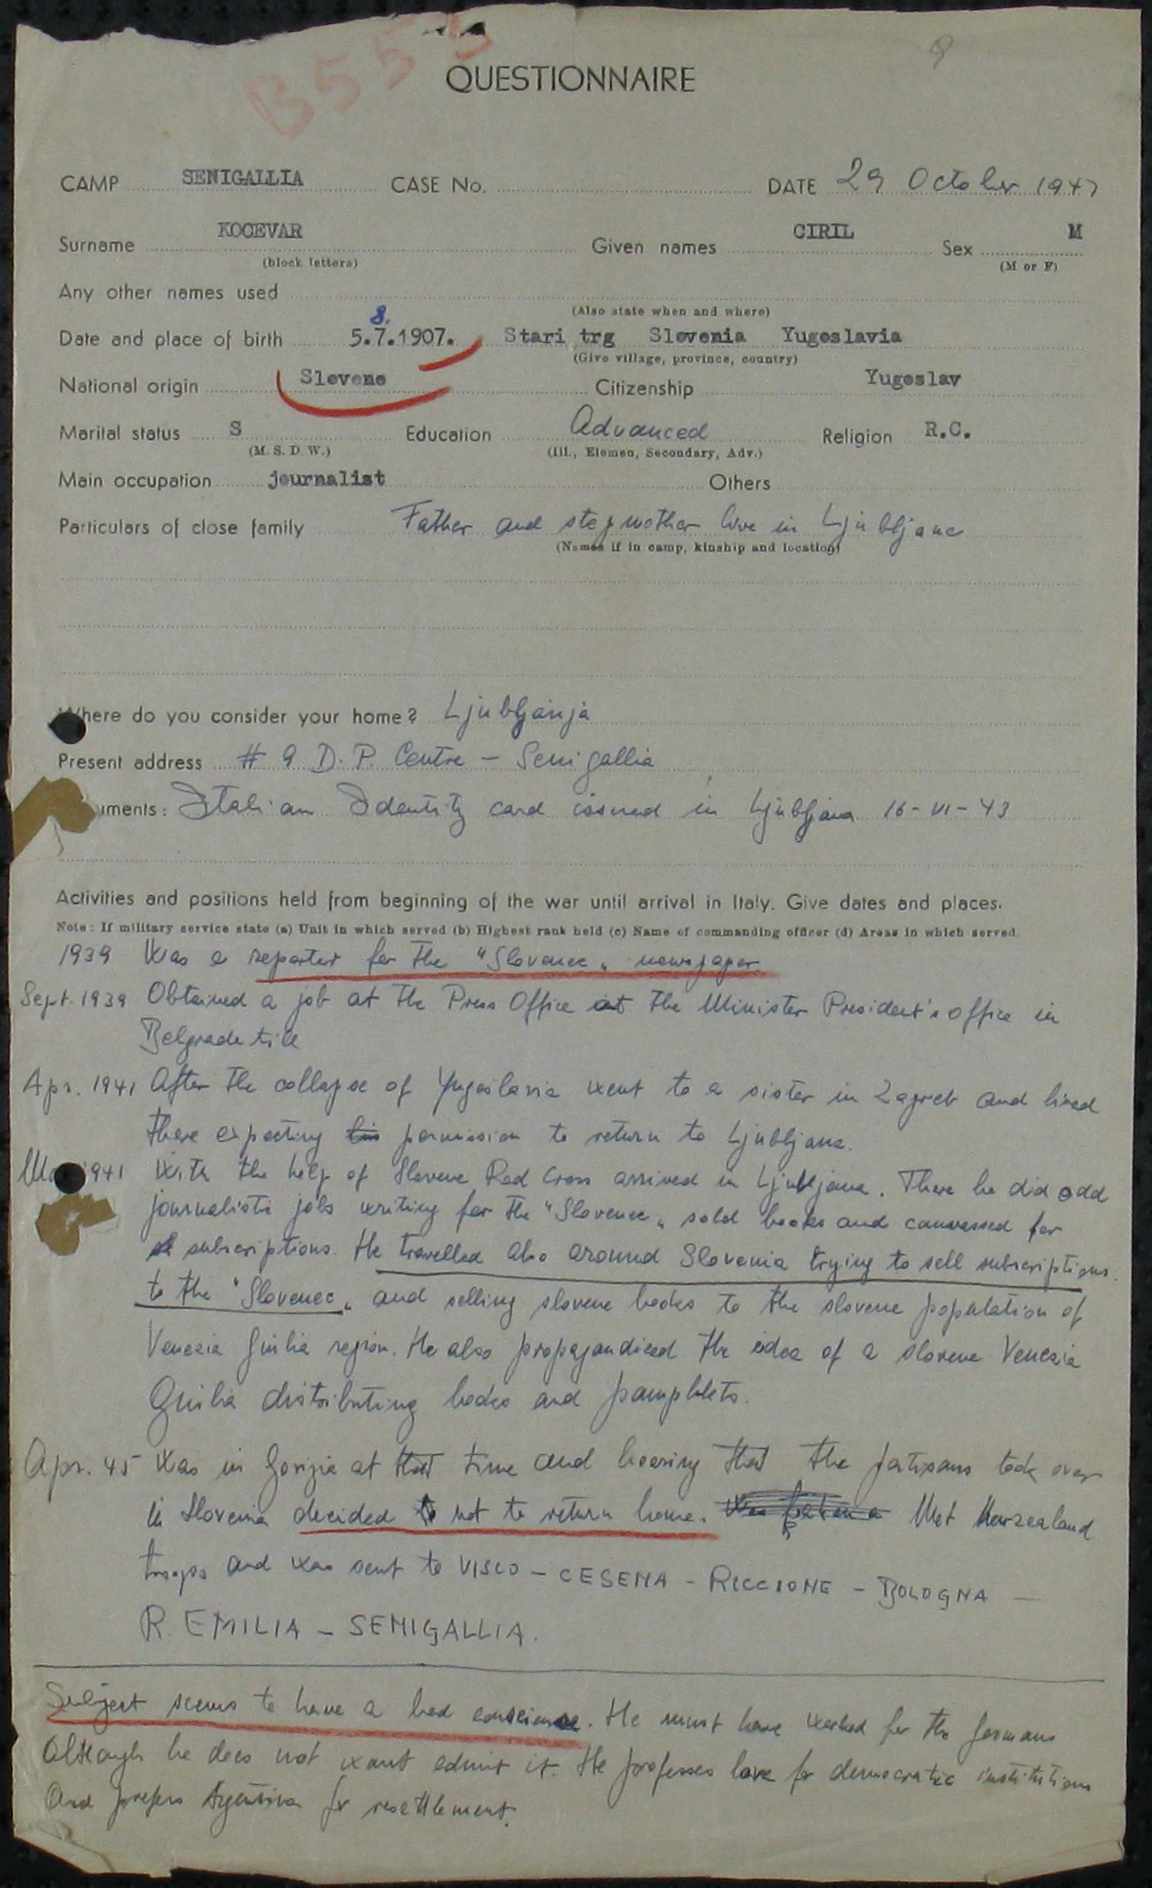 B55
QUESTIONNAIRE
CAMP SENIGALLIA CASE No. DATE 29 October 1947
Surname KOCEVAR Given names CIRIL Sex M
(block letters) (M or F)
Any other names used
(Also state when and where)
8.
Date and place of birth 5.7.1907. Stari trg Slovenia Yugoslavia
(Give village, province, country)
National origin Slovene Citizenship Yugoslav
Marital status S Education Advanced Religion R.C.
(M. S. D. W.) (Ill., Elemen, Secondary, Adv.)
Main occupation journalist Others
Particulars of close family Father and stepmother live in Ljubljana
(Names if in camp, kinship and location)
Where do you consider your home? Ljubljanja
Present address # 9 D.P. Centre - Senigallia
uments: Italian Identity card issued in Ljubljana 16-VI-43
Activities and positions held from beginning of the war until arrival in Italy. Give dates and places.
Note: If military service state (a) Unit in which served (b) Highest rank held (c) Name of commanding officer (d) Areas in which served.
1939 Was a reporter for the "Slovenec" newspaper
Sept. 1939 Obtained a job at the Press Office at the Minister President's office in
Belgrade till
Apr. 1941 After the collapse of Yugoslavia went to a sister in Zagreb and lived
there expecting his permission to return to Ljubljana.
1941 With the help of Slovene Red Cross arrived in Ljubljana. There he did odd
journalistic jobs writing for the "Slovenec", sold books and canvassed for
subscriptions. He travelled also around Slovenia trying to sell subscriptions
to the "Slovenec" and selling slovene books to the slovene population of
Venezia Giulia region. He also propagandised the idea of a slovene Venezia
Giulia distributing books and pamphlets.
Apr. 45 Was in Gorizia at that time and hearing that the partisans took over
in Slovenia decided not to return home. Met Newzealand
troops and was sent to VISCO - CESENA - RICCIONE - BOLOGNA -
R. EMILIA - SENIGALLIA.
Subject seems to have a bad conscience. He must have worked for the Germans
although he does not want admit it. He professes love for democratic institutions
and prefers Argentina for resettlement.